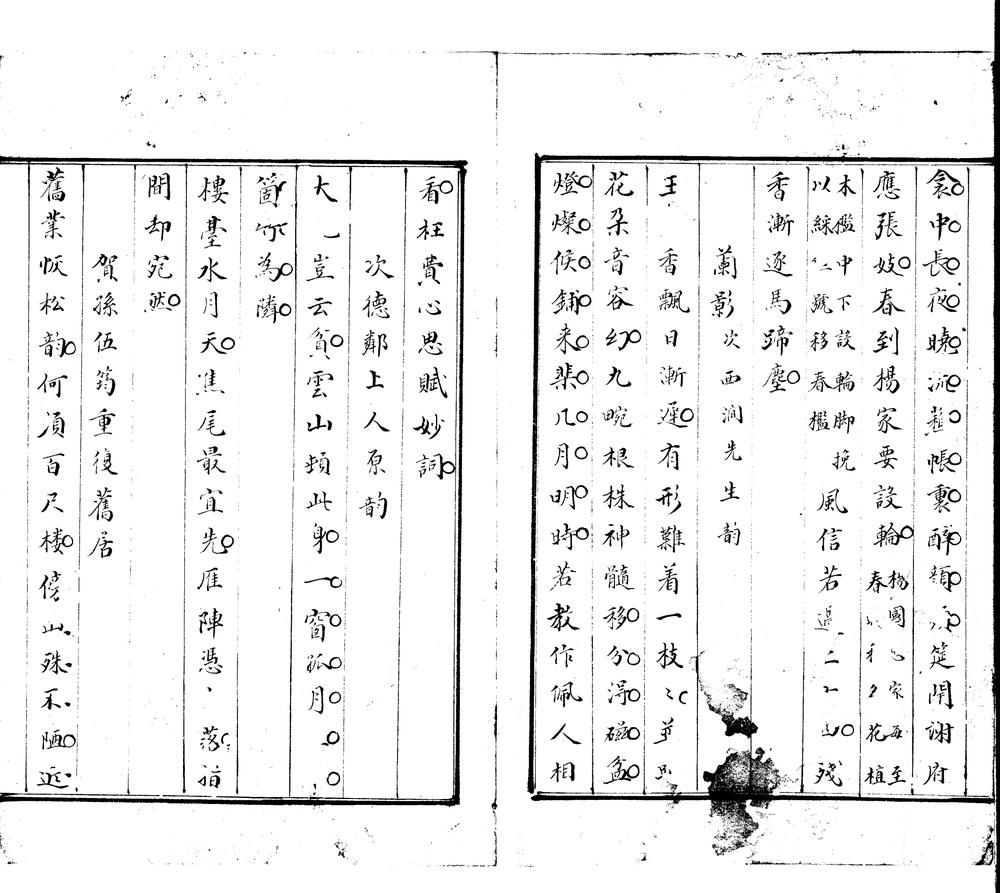 衾中長夜曉流蘇帳裏醉顏筵開謝府
應張妓春到楊家要設輪楊國家每至春花植
木檻中下設輪脚挽以綵仁號移春檻風信若二殘
香漸逐馬蹄塵
蘭影次西澗先生韵
王香飄日漸遲有形難着一枝
花朵音容幻九畹根株神髓移分淂磁盆
燈燦候鋪来棐几月明時若教作佩人相
看枉費心思賦妙詞
次德鄰上人原韵
大豈云貧雲山頓此身一窗孤月
箇竹為隣
樓臺水月天焦尾最宜先雁陣憑落指
間却宛然
賀孫伍筠重復舊居
舊業恢松韵何湏百尺楼傍山殊不陋近